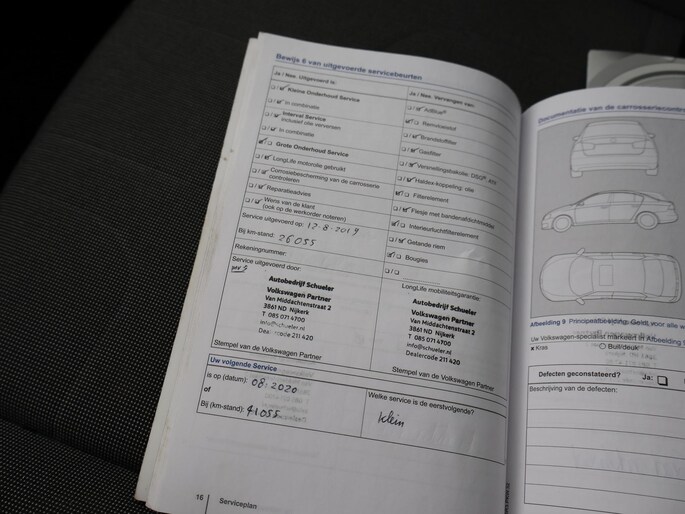 Bewijs 6 van uitgevoerde servicebeurten
Ja / Nee. Uitgevoerd is:
Kleine Onderhoud Service
In combinatie
Interval Service
Inclusief olie verversen
In combinatie
Grote Onderhoud Service
LongLife motorolie gebruikt
Corrosiebescherming van de carrosserie
controleren
Reparatieadvies
Wens van de klant
(ook op de werkorder noteren)
Service uitgevoerd op: 12-8-2019
Bij km-stand: 26055
Rekeningnummer:
Service uitgevoerd door:
Autobedrijf Schueler
Volkswagen Partner
Van Middachtenstraat 2
3861 ND Nijkerk
T 085 071 4700
info@schueler.nl
Dealercode 211 420
Stempel van de Volkswagen Partner
Ja / Nee. Vervangen van:
AdBlue®
Remvloeistof
Brandstoffilter
Oliefilter
Versnellingsbakolie: DSG®, AT6
Haldex-koppeling: olie
Filterelement
Flesje met bandenafdichtmiddel
Interieurluchtfilterelement
Getande riem
Bougies
LongLife mobiliteitsgarantie:
Autobedrijf Schueler
Volkswagen Partner
Van Middachtenstraat 2
3861 ND Nijkerk
T 085 071 4700
info@schueler.nl
Dealercode 211 420
Stempel van de Volkswagen Partner
Uw volgende Service
is op (datum): 08-2020
of
Bij (km-stand): 41055
Welke service is de eerstvolgende?
klein
16 Serviceplan
Documentatie van de carrosseriecontrol
Afbeelding 9 Principeafbeelding: Geldt voor alle
Uw Volkswagen-specialist markeert in Afbeelding 9
× Kras
Bult/deuk
Defecten geconstateerd? Ja:
Beschrijving van de defecten: